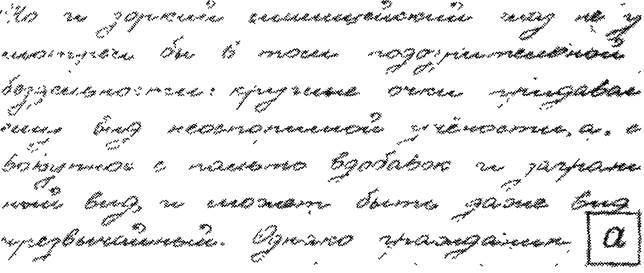 Но и зоркий милицейский глаз не у
смотрел бы в том подозрительной
бездеятельности: круглые очки придавал
ему вид неоспоримой учёности, а, в
совокупности с пальто вдобавок и загранич
ный вид, и может быть даже вид
чрезвычайный. Однако гражданин
а